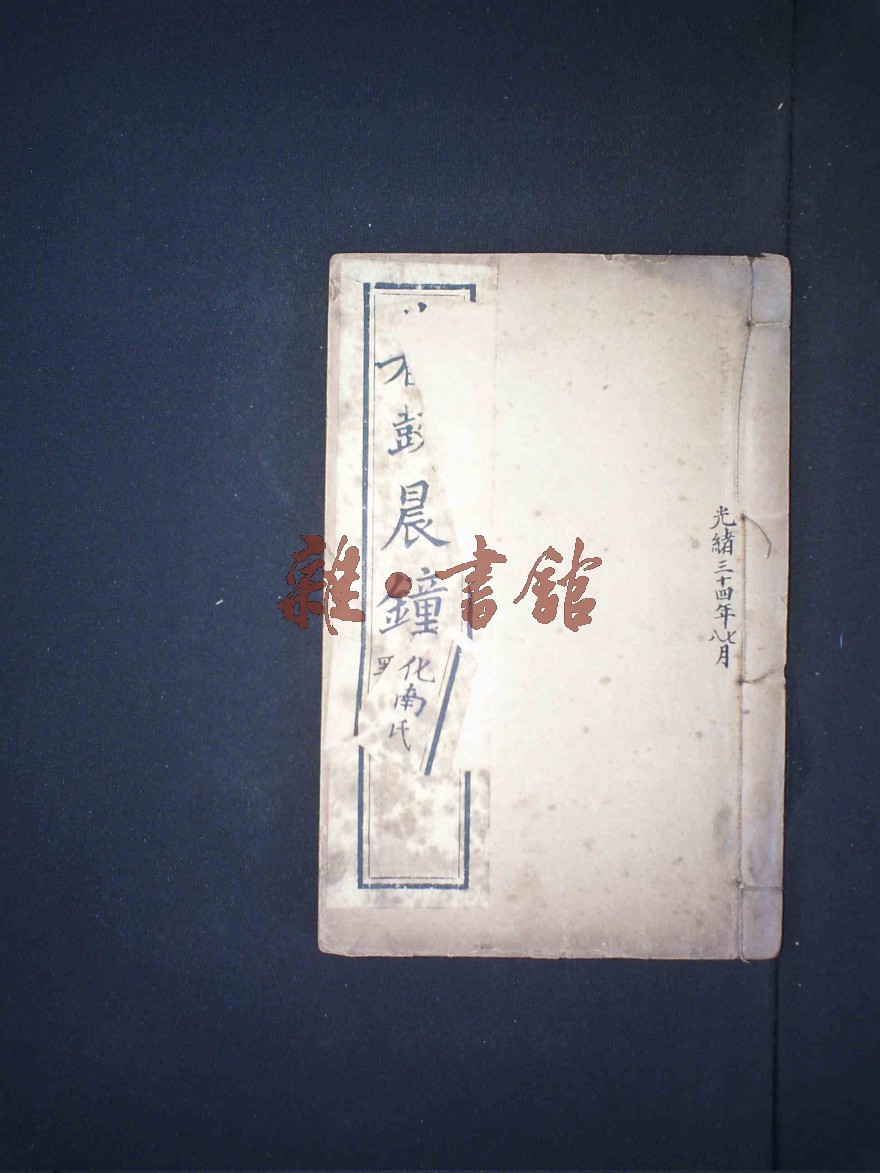 光緒三十四年七八月
晨鐘
化南氏
雜·書館